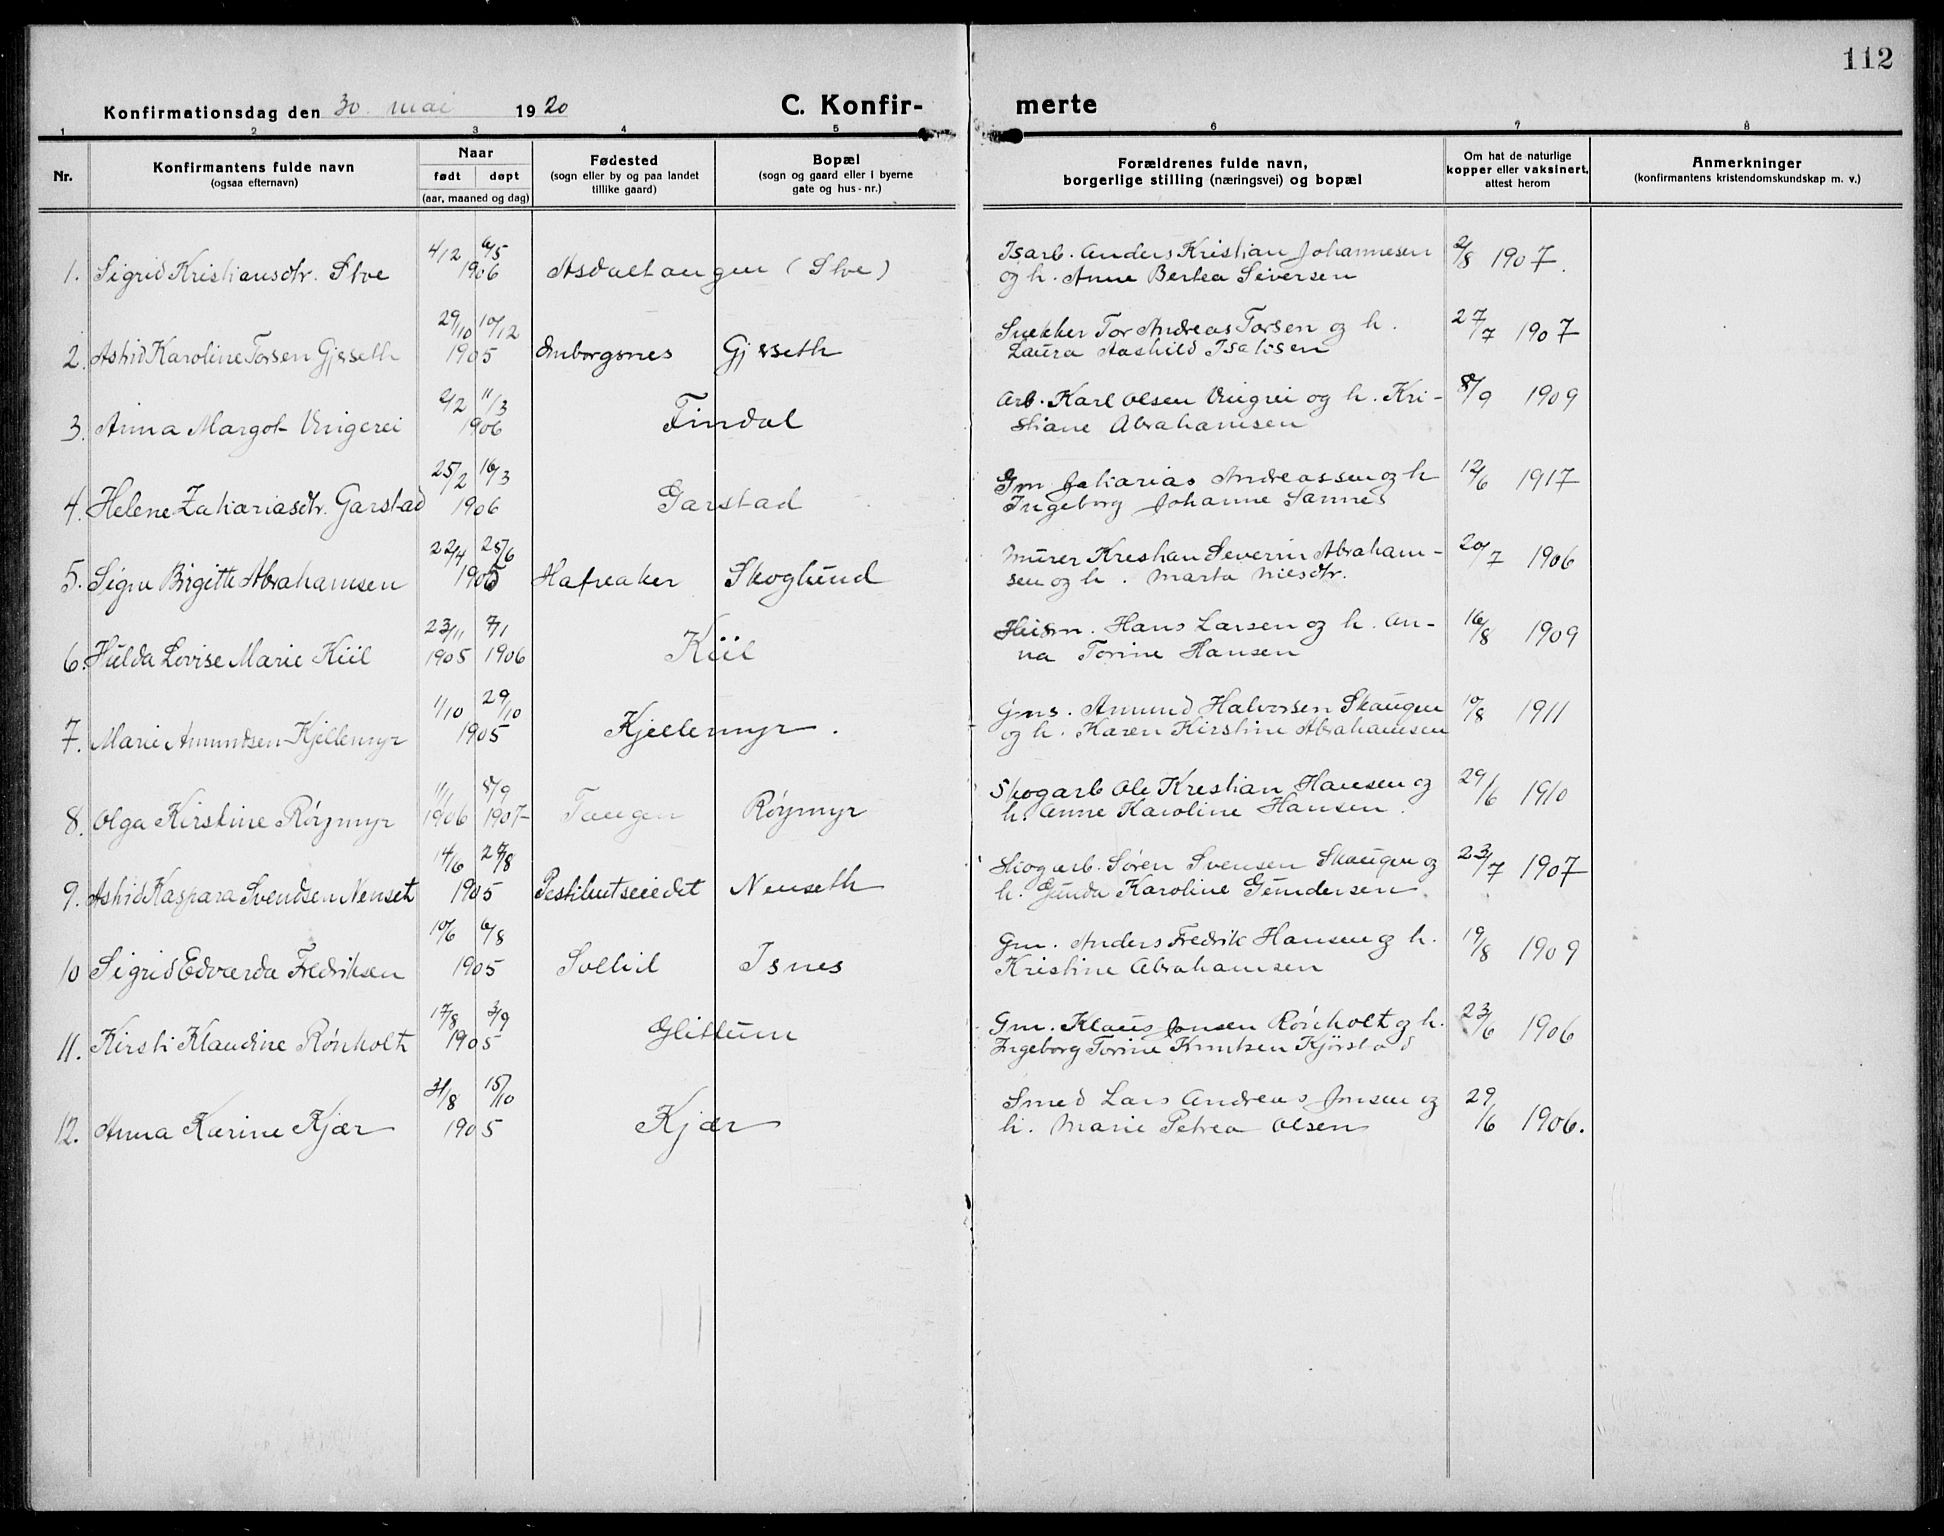 112
Konfirmationsdag den 30. mai 1920 C. Konfir- merte
1 2 3 4 5 6 7 8
Nr. Konfirmantens fulde navn (ogsaa efternavn) Naar født døpt (aar, maaned og dag) Fødested (sogn eller by og paa landet tillike gaard) Bopæl (sogn og gaard eller i byerne gate og hus-nr.) Forældrenes fulde navn, borgerlige stilling (næringsvei) og bopæl Om hat de naturlige kopper eller vaksinert, attest herom Anmerkninger (konfirmantens kristendomskundskap m. v.)
4/12 6/5 Isarb. Anders Kristian Johannesen 2/8 1907.
1. Sigrid Kristiansdtr. Stve 1906 Asdaltangen (Stve) og h. Anne Bertea Seversen
29/10 10/12 Snekker Tor Andreas Torsen og h. 27/7 1907
2. Astrid Karoline Torsen Gjerseth 1905 Inborgsnes Gjerseth Laura Aashild Isaksen
2/2 11/3 Arb. Karl Olsen Vingrei og h. Kri- 8/9 1909
3. Anna Margot Vingerei 1906 Findal stiane Abrahamsen
25/2 16/3 Gm Zakarias Andreassen og h 12/6 1917
4. Helene Zakariasdtr. Garstad 1906 Garstad Ingeborg Johanne Sannes
22/4 25/6 Murer Kreshan Severin Abraham- 20/7 1906
5. Signe Birgitte Abrahamsen 1905 Hafreaker Skoglund sen og h. Marta Nilsdtr.
23/11 7/1 Husm. Hans Larsen og h. An- 16/8 1909
6. Hulda Lovise Marie Kiil 1905 1906 Kiil na Torine Hansen
1/10 29/10 Gms. Amund Halvorsen Skaugen 10/8 1911
7. Marie Amundsen Kjellemyr 1905 Kjellemyr. og h. Karen Kirstine Abrahamsen
11/1 8/9 Skogarb Ole Krestian Hansen og 29/6 1910
8. Olga Kirstine Röymyr 1906 1907 Tangen Röymyr h. Anne Karoline Hansen.
14/6 27/8 Skogarb. Sören Svensen Skaugen og 23/7 1907
9. Astrid Kaspara Svendsen Nenset 1905 Pestilentseiedet Nenseth h. Gunda Karoline Gundersen
10/6 6/8 Gm. Anders Fredrik Hansen og h. 19/8 1909
10 Sigrid Edvarda Fredriksen 1905 Solhil Isnes Kristine Abrahamsen
17/8 3/9 Gm. Klaus Jonsen Rönholt og h. 23/6 1906
11. Kirsti Klaudine Rönholt 1905 Glittum Ingeborg Torine Knutsen Kjörstad
31/8 15/10 Smed Lars Andreas Jonsen og 29/6 1906.
12. Anna Karine Kjær 1905 Kjær h. Marie Petrea Olsen